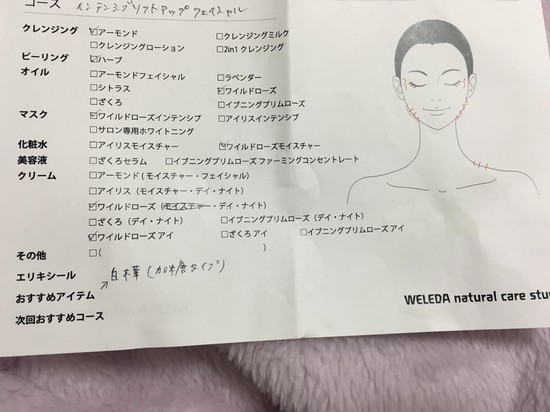 コース インテンシブリフトアップフェイシャル
クレンジング ☑アーモンド □クレンジングミルク
□クレンジングローション □2in1 クレンジング
ピーリング ☑ハーブ
オイル □アーモンドフェイシャル □ラベンダー
□シトラス ☑ワイルドローズ
□ざくろ □イブニングプリムローズ
マスク ☑ワイルドローズインテンシブ □アイリスインテンシブ
□サロン専用ホワイトニング
化粧水 □アイリスモイスチャー ☑ワイルドローズモイスチャー
美容液 □ざくろセラム □イブニングプリムローズ ファーミングコンセントレート
クリーム □アーモンド(モイスチャー・フェイシャル)
□アイリス(モイスチャー・デイ・ナイト)
☑ワイルドローズ(モイスチャー・デイ・ナイト)
□ざくろ(デイ・ナイト) □イブニングプリムローズ(デイ・ナイト)
☑ワイルドローズ アイ □ざくろ アイ □イブニングプリムローズ アイ
その他 □( )
エリキシール 白樺(加糖タイプ)
おすすめアイテム
次回おすすめコース
WELEDA natural care stu